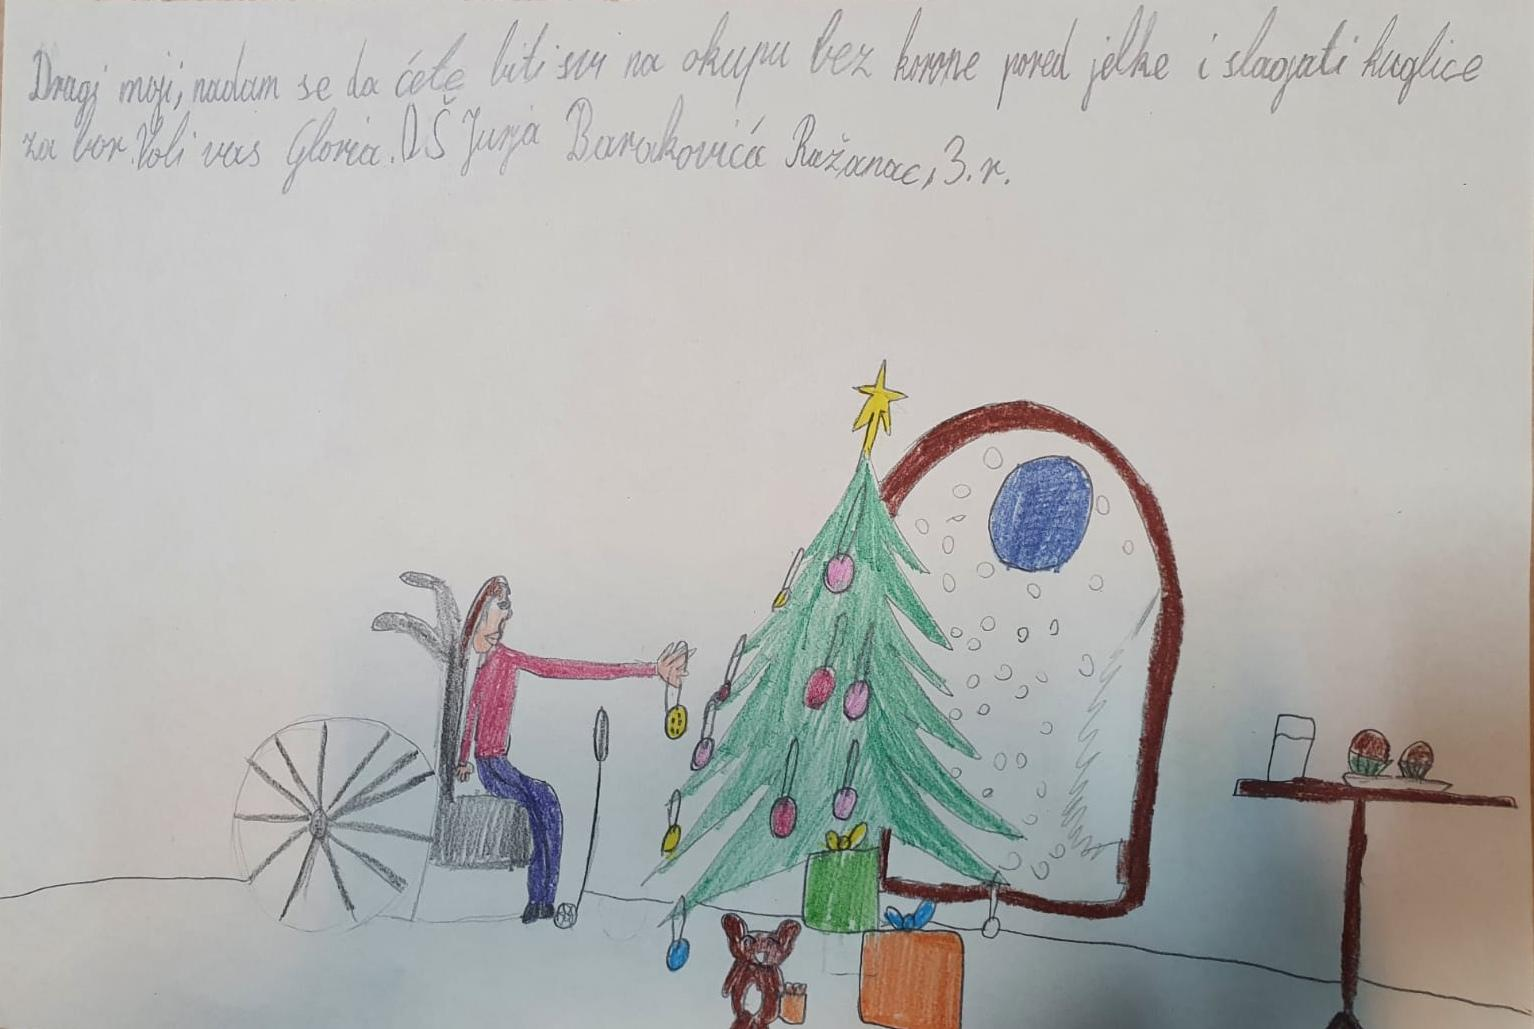 Dragi moji, nadam se da ćete biti svi na okupu bez korone pored jelke i slagati kuglice
za bor. Voli vas Gloria. OŠ Jurja Barakovića Ražanac, 3. r.